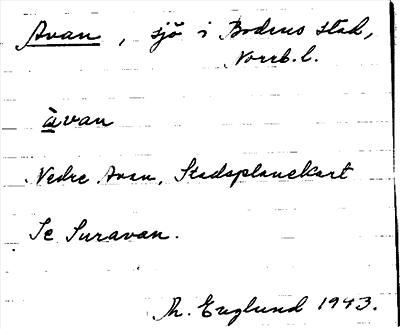 Avan, sjö i Bodens stad,
Norrb.l.
àvan
Nedre Avan, Stadsplanekart
Se Suravan.
Th. Englund 1943.